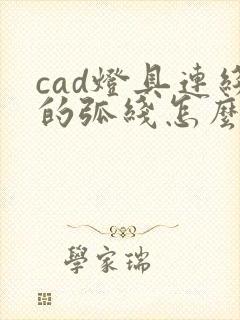 cad燈具連綫
的弧綫怎麼
學家瑞